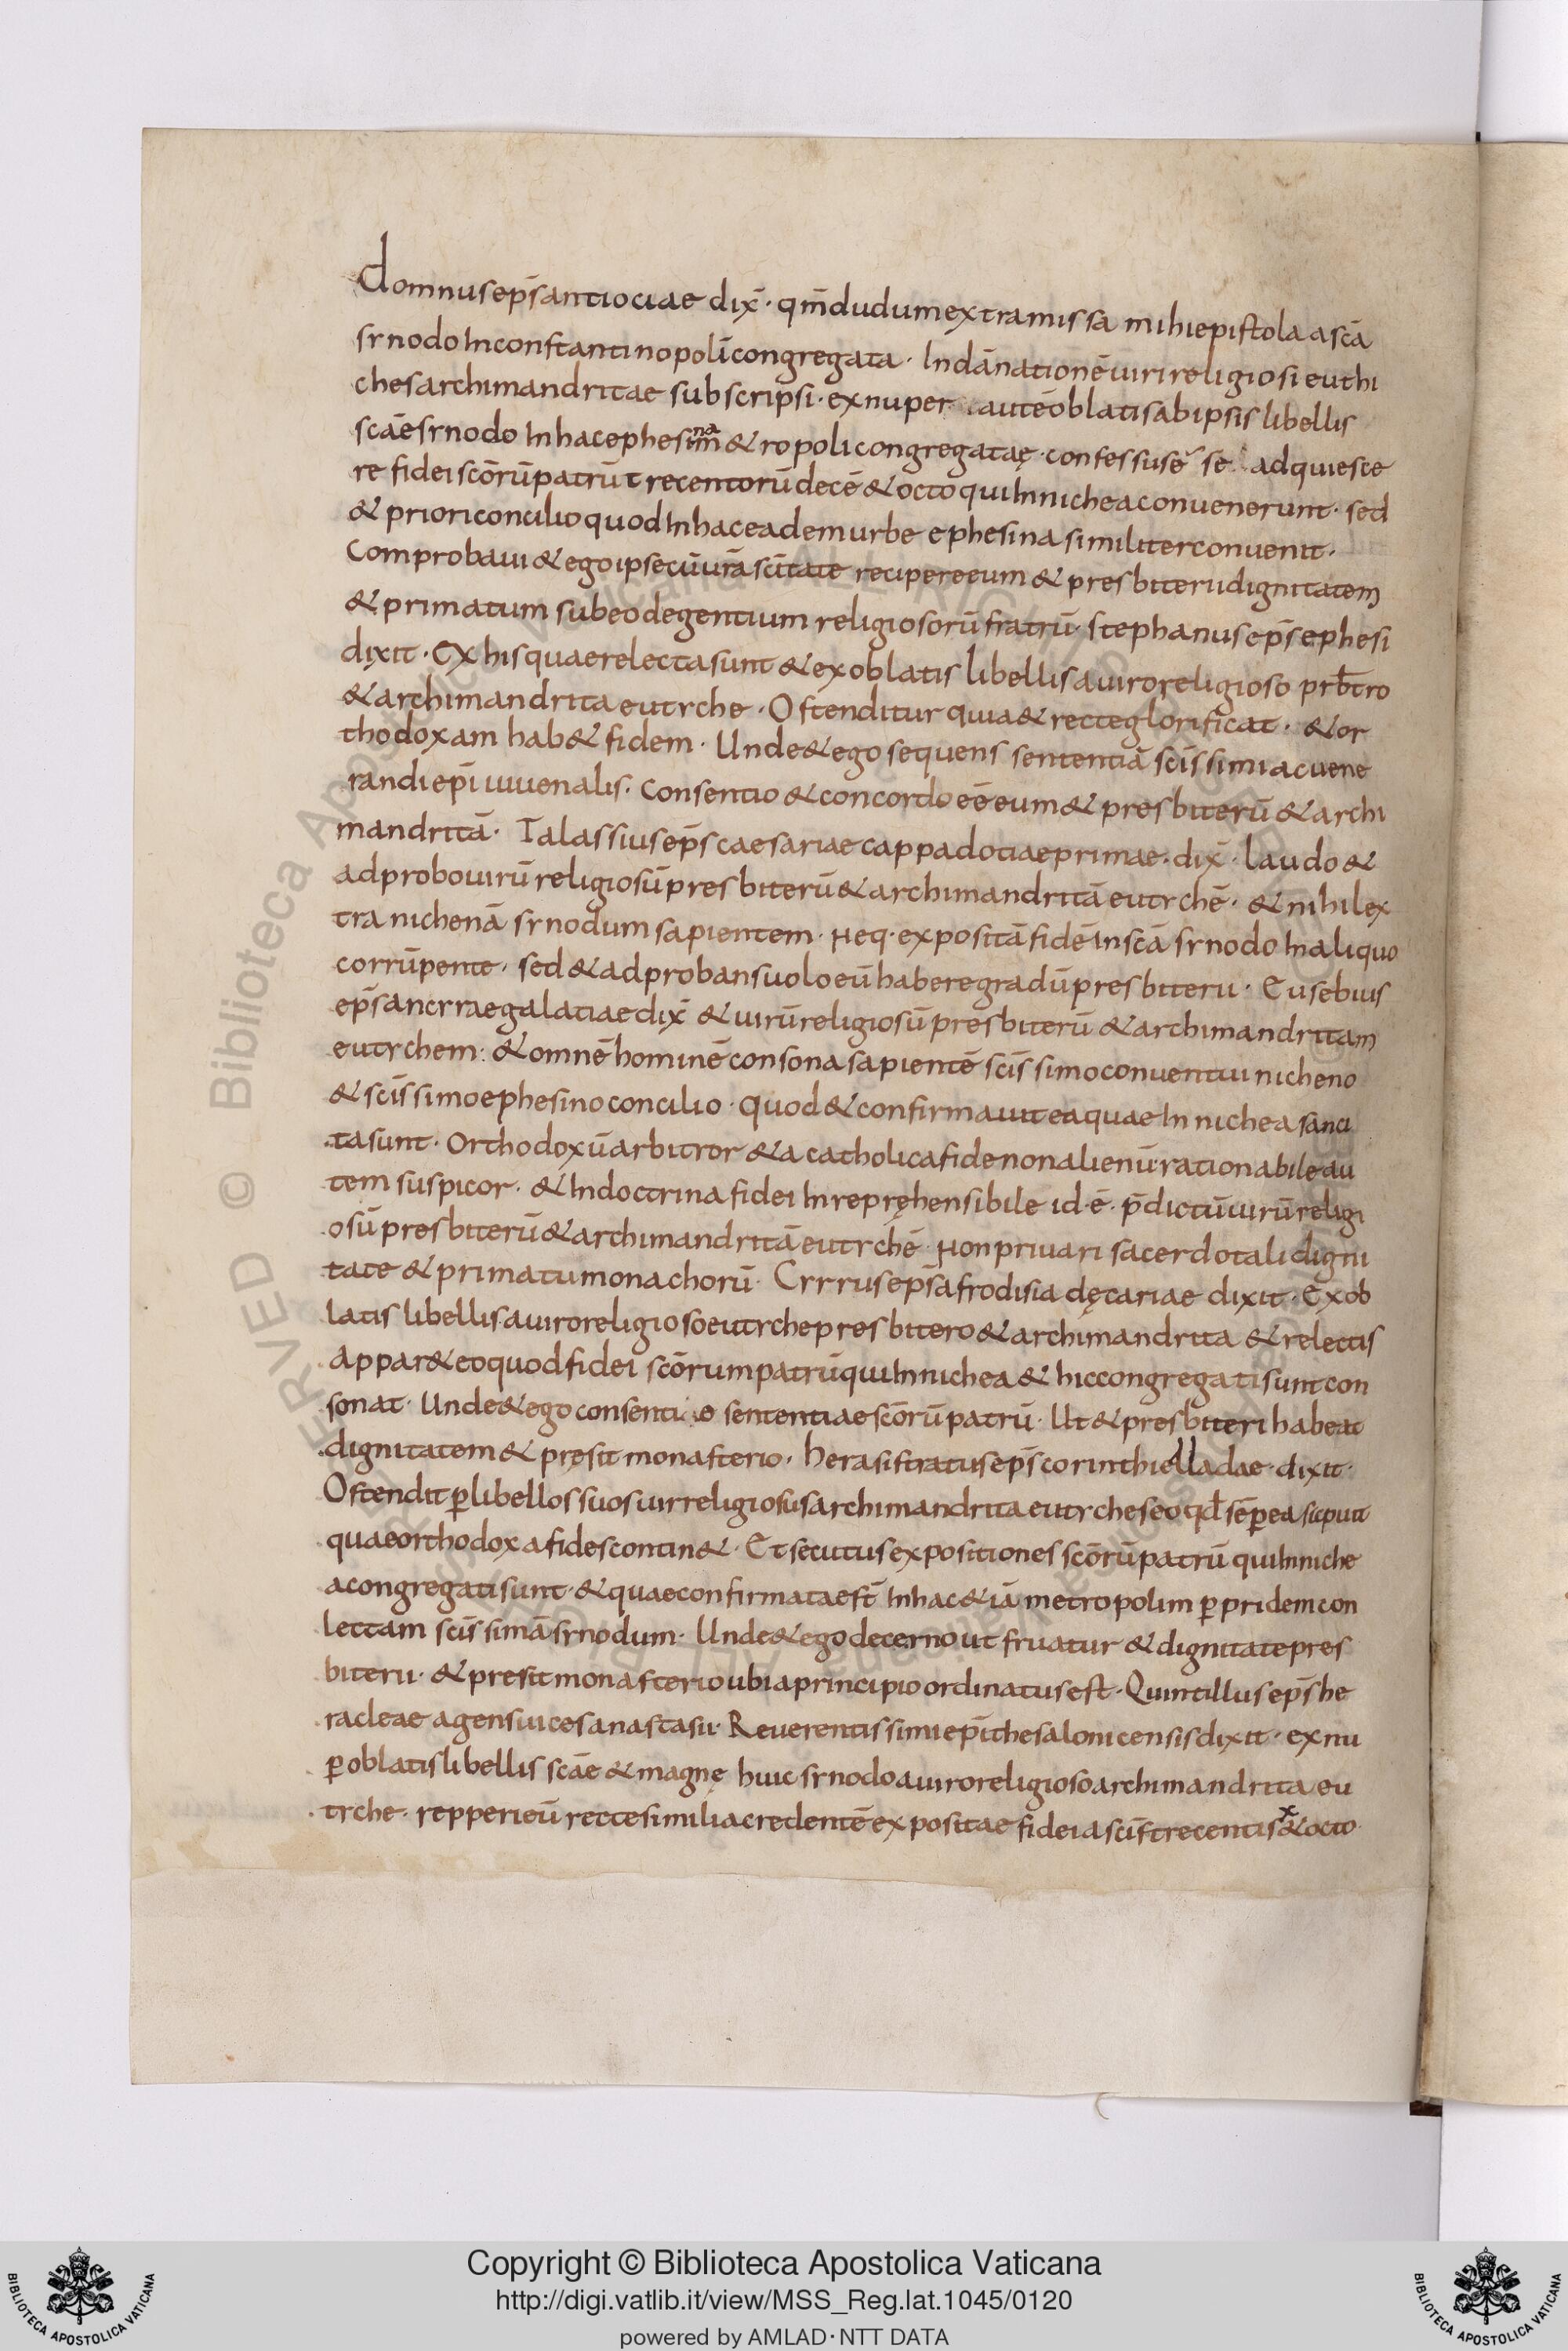 Domnus ep̄s antiociae dix̄· qm̄ dudum ex tramissa mihi epistola a scā
synodo in constantinopoli congregata· In dānationē uiri religiosi euthi
ches archimandritae subscripsi· ex nuper autē oblatis ab ipsis libellis
scāe synodo In hac ephesina m&ropoli congregatę· confessus ē se adquiesce
re fidei scōrū patrū trecentorū decē & octo qui In nichea conuenerunt· sed
& priori concilio quod In hac eadem urbe ephesina similiter conuenit·
Comprobaui & ego ipse cū urā scītate recipere eum & presbiterii dignitatem
& primatum sub eo degentium religiosorū fratrū· stephanus ep̄s ephesi
dixit· Ex his quae relecta sunt & ex oblatis libellis a uiro religioso prb̄tro
& archimandrita eutyche· Ostenditur quia & recte glorificat· & or
thodoxam hab& fidem· Unde & ego sequens sententiā scīssimi ac uene
randi epī iuuenalis· Consentio & concordo eē eum & presbiterū & archi
mandritā· Talassius ep̄s caesariae cappadociae primae· dix̄· laudo &
adprobo uirū religiosū presbiterū & archimandritā eutychē· & nihil ex
tra nichenā synodum sapientem· Neq· expositā fidē In scā synodo In aliquo
corrūpente· sed & adprobans uolo eū habere gradū presbiterii· Eusebius
ep̄s ancyrae galatiae dix̄ & uirū religiosū presbiterū & archimandritam
eutychem: & omnē hominē consona sapientē scīssimo conuentui nicheno
& scīssimo ephesino concilio· quod & confirmauit ea quae In nichea sanci
ta sunt· Orthodoxū arbitror & a catholica fide non alienū· rationabile au
tem suspicor· & In doctrina fidei Inrepręhensibile id· ē· p̄dictū uirū religi
osū presbiterū & archimandritā eutychē· Non priuari sacerdotali digni
tate & primatu monachorū· Cyrrus ep̄s afrodisia dęcariae dixit· Ex ob
latis libellis a uiro religioso eutyche presbitero & archimandrita & relectis
Appar& eo quod fidei scōrum patrū qui In nichea & hic congregati sunt con
sonat· Unde & ego consentio sententiae scōrū patrū· Ut & presbiteri habeat
dignitatem & pręsit monasterio· herasistratus ep̄s corinthi elladae· dixit·
Ostendit ꝑ libellos suos uir religiosus archimandrita eutyches eo qđ sēꝑ ea sic putit
quae orthodoxa fides contin&· Et secutus expositiones scōrū patrū qui In niche
a congregati sunt· & quae confirmata est̄ In hac &iā metropolim ꝑpridem con
lectam scīssimā synodum· Unde & ego decerno ut fruatur & dignitate pres
biterii· & presit monasterio ubi a principio ordinatus est· Quintillus ep̄s he
racleae agens uices anastasii· Reuerentissimi epī thesalonicensis dixit· ex nu
ꝑ oblatis libellis scāe & magnę huic synodo a uiro religioso archimandrita eu
tyche· repperi eū recte similia credentē expositae fidei a scīs trecentis x & octo
Copyright © Biblioteca Apostolica Vaticana
http://digi.vatlib.it/view/MSS_Reg.lat.1045/0120
powered by AMLAD·NTT DATA